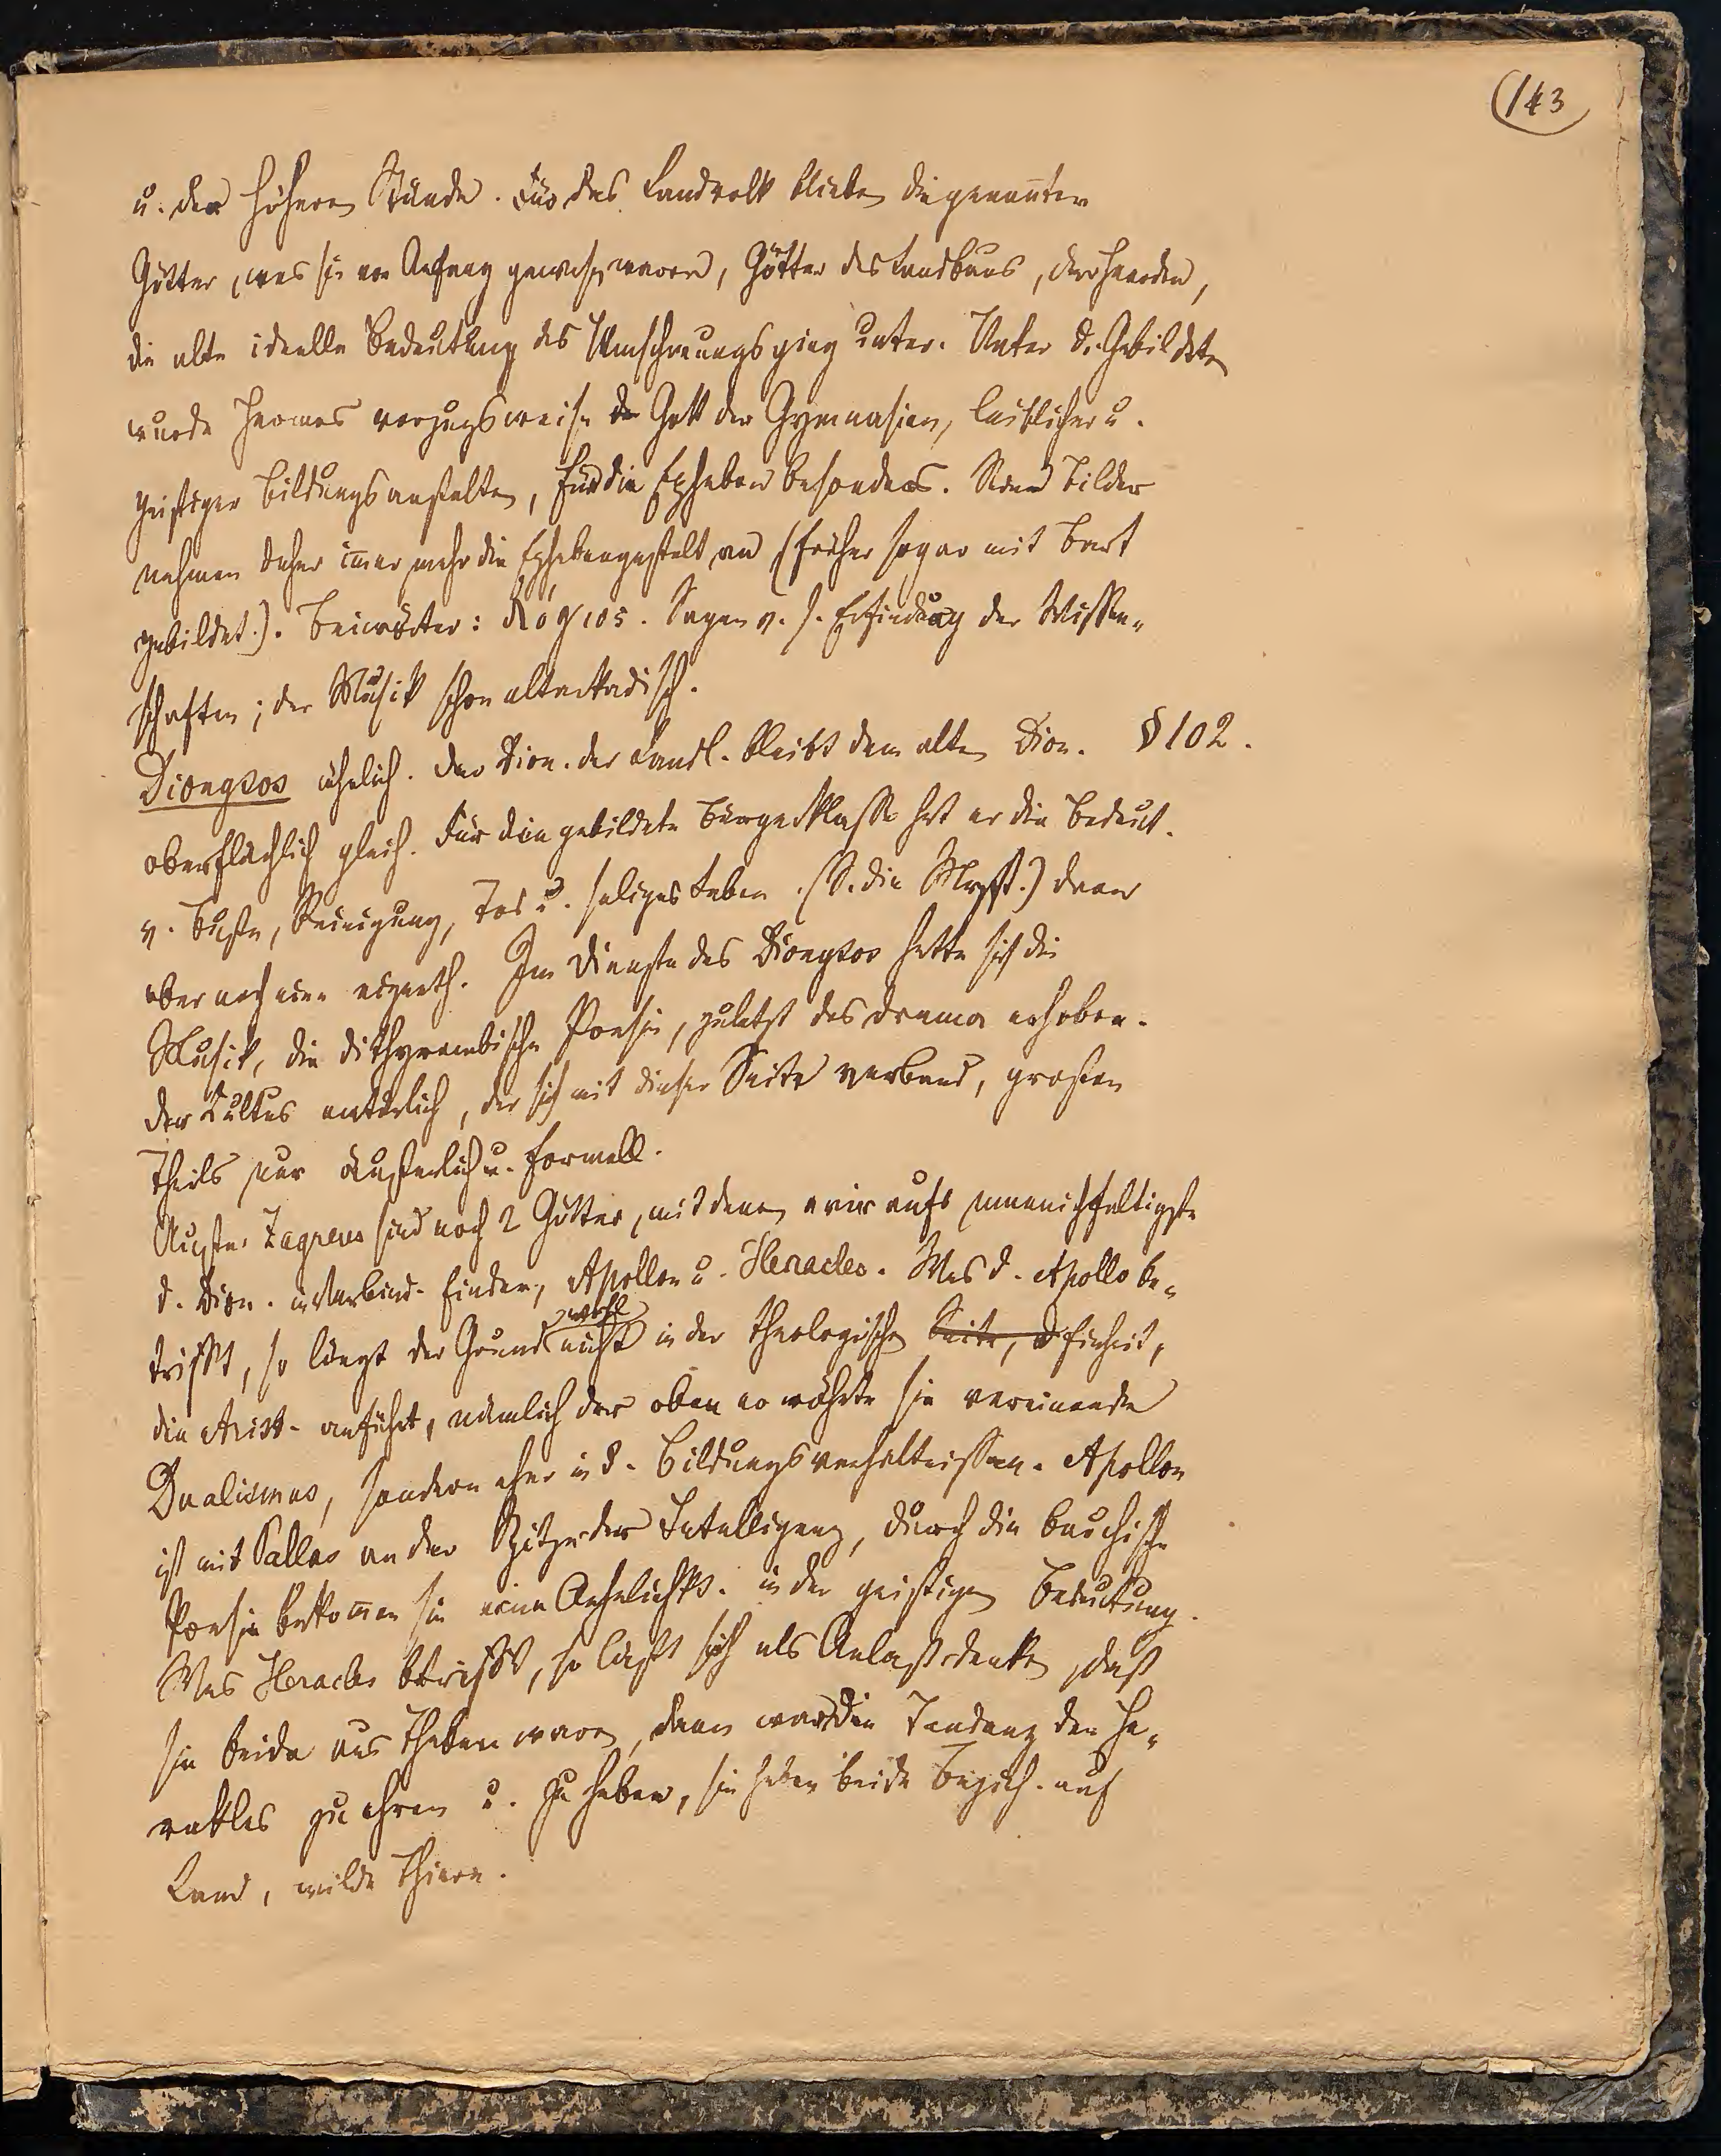 143
u. der höhern Stände. Für das Landvolk blieben die genannten
Götter, was sie von Anfang gewesen waren, Götter des Landbaus, der Heerden,
die alte ideelle Bedeutung des ging unter. Unter d. Gebildeten
wurde Hermes vorzugsweise der Gott der Gymnasien, leiblicher u.
geistiger Bildungsanstalten, für die Epheben besonders. Seine Bilder
nehmen daher im̄er mehr die Ephebengestalt an (früher sogar mit Bart
gebildet.). Beiwörter: λόγιος. Sagen v. s. Erfindung der Wissen-
schaften; der Musik schon altarkadisch.
Dionysos ähnlich. Der Dion. der Landl. bleibt dem alten Dion. § 102.
oberflächlich gleich. Für die gebildete Bürgerklasse hat er die Bedeut.
v. Buße, Reinigung, Tod u. seliges Leben. (S. die Myst.) dann
aber noch eine Im Dienste des Dionysos hatte sich die
Musik, die dithyrambische Poesie, zuletzt das Drama erhoben.
Der Cultus natürlich, der sich mit dieser Seite verband, großen
Theils nur äußerlich u. formell.
Außer Zagreus sind noch 2 Götter, mit denen wir aufs mannichfaltigste
d. Dion. in Verbind. finden, Apollon u. Heracles. Was d. Apollo be-
wohl
trifft, so liegt der Grund nicht in der theologischen Seite, d Einheit,
die Arist. anführt, nämlich der oben erwähnte sie vereinende
Dualismus, sondern eher in d. Bildungsverhältnissen. Apollon
ist mit Pallas an der Spitze der Intelligenz, durch die bacchische
Poesie bekom̄en sie eine Aehnlichk. in der geistigen Bedeutung.
Was Heracles betrifft, so läßt sich als Anlaß denken, daß
sie beide aus Theben waren, dann war die Tendenz den He-
rakles zu ehren u. zu heben, sie haben beide Bezieh. auf
Land, wilde Thiere.